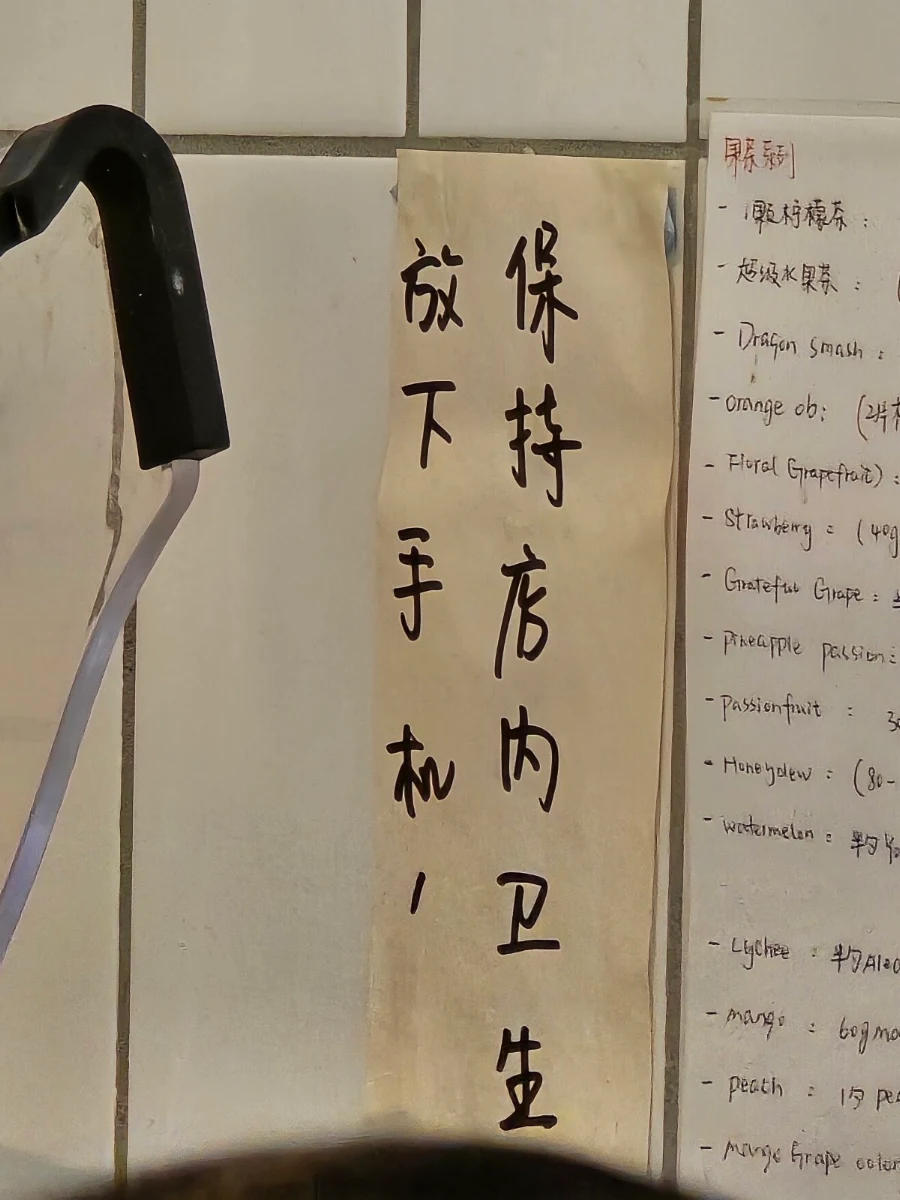 保持店内卫生
放下手机！
果茶系列
- 1颗柠檬茶：
- 超级水果茶：（
- Dragon smash：
- orange ob：（2片
- Floral Grapefruit)：
- Strawberry =（40g
- Grateful Grape =
- pineapple passion：
- passionfruit ： 30
- Honeydew =（80-
- watermelon：半勺
- Lychee ：半勺Aloe
- mango ：60g ma
- peath ：1勺 pea
- mango Grape color